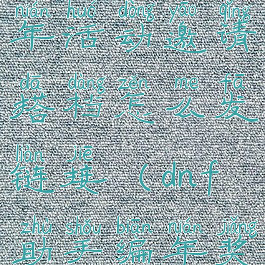 nián huó dòng yāo qǐng
年活动邀请
dā dàng zěn me fā
搭档怎么发
liàn jiē
链接（dnf
zhù shǒu biān nián jiǎng
助手编年奖